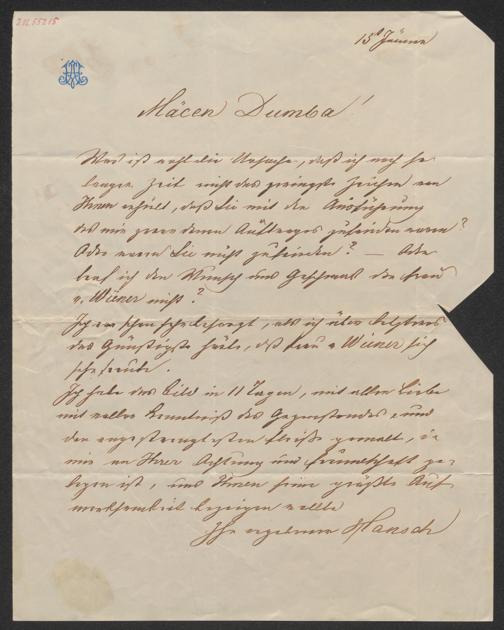 I.N. 55215
15t Jänner
Mäcen Dumba!
Was ist wohl die Ursache, daß ich nach so
langer Zeit nicht das geringste Zeichen von
Ihnen erhielt, daß Sie mit der Ausführung
des mir gewordenen Auftrages zufrieden waren?
Oder waren Sie nicht zufrieden? — Oder
traf ich den Wunsch und Geschmack der Frau
v. Wiener nicht?
Ich war schon sehr besorgt, als ich über
das Günstigste hörte, daß Frau v Wiener sich
sehr freute.
Ich habe das Bild in 11 Tagen, mit aller Liebe
mit voller Kenntniß des Gegenstandes, und
den angestrengtesten Fleiße gemalt, da
mir an Ihrer Achtung und Freundschaft ge-
legen ist, und Ihnen eine größte Auf
merksamkeit bezeigen wollte
Ihr ergebener Hansch